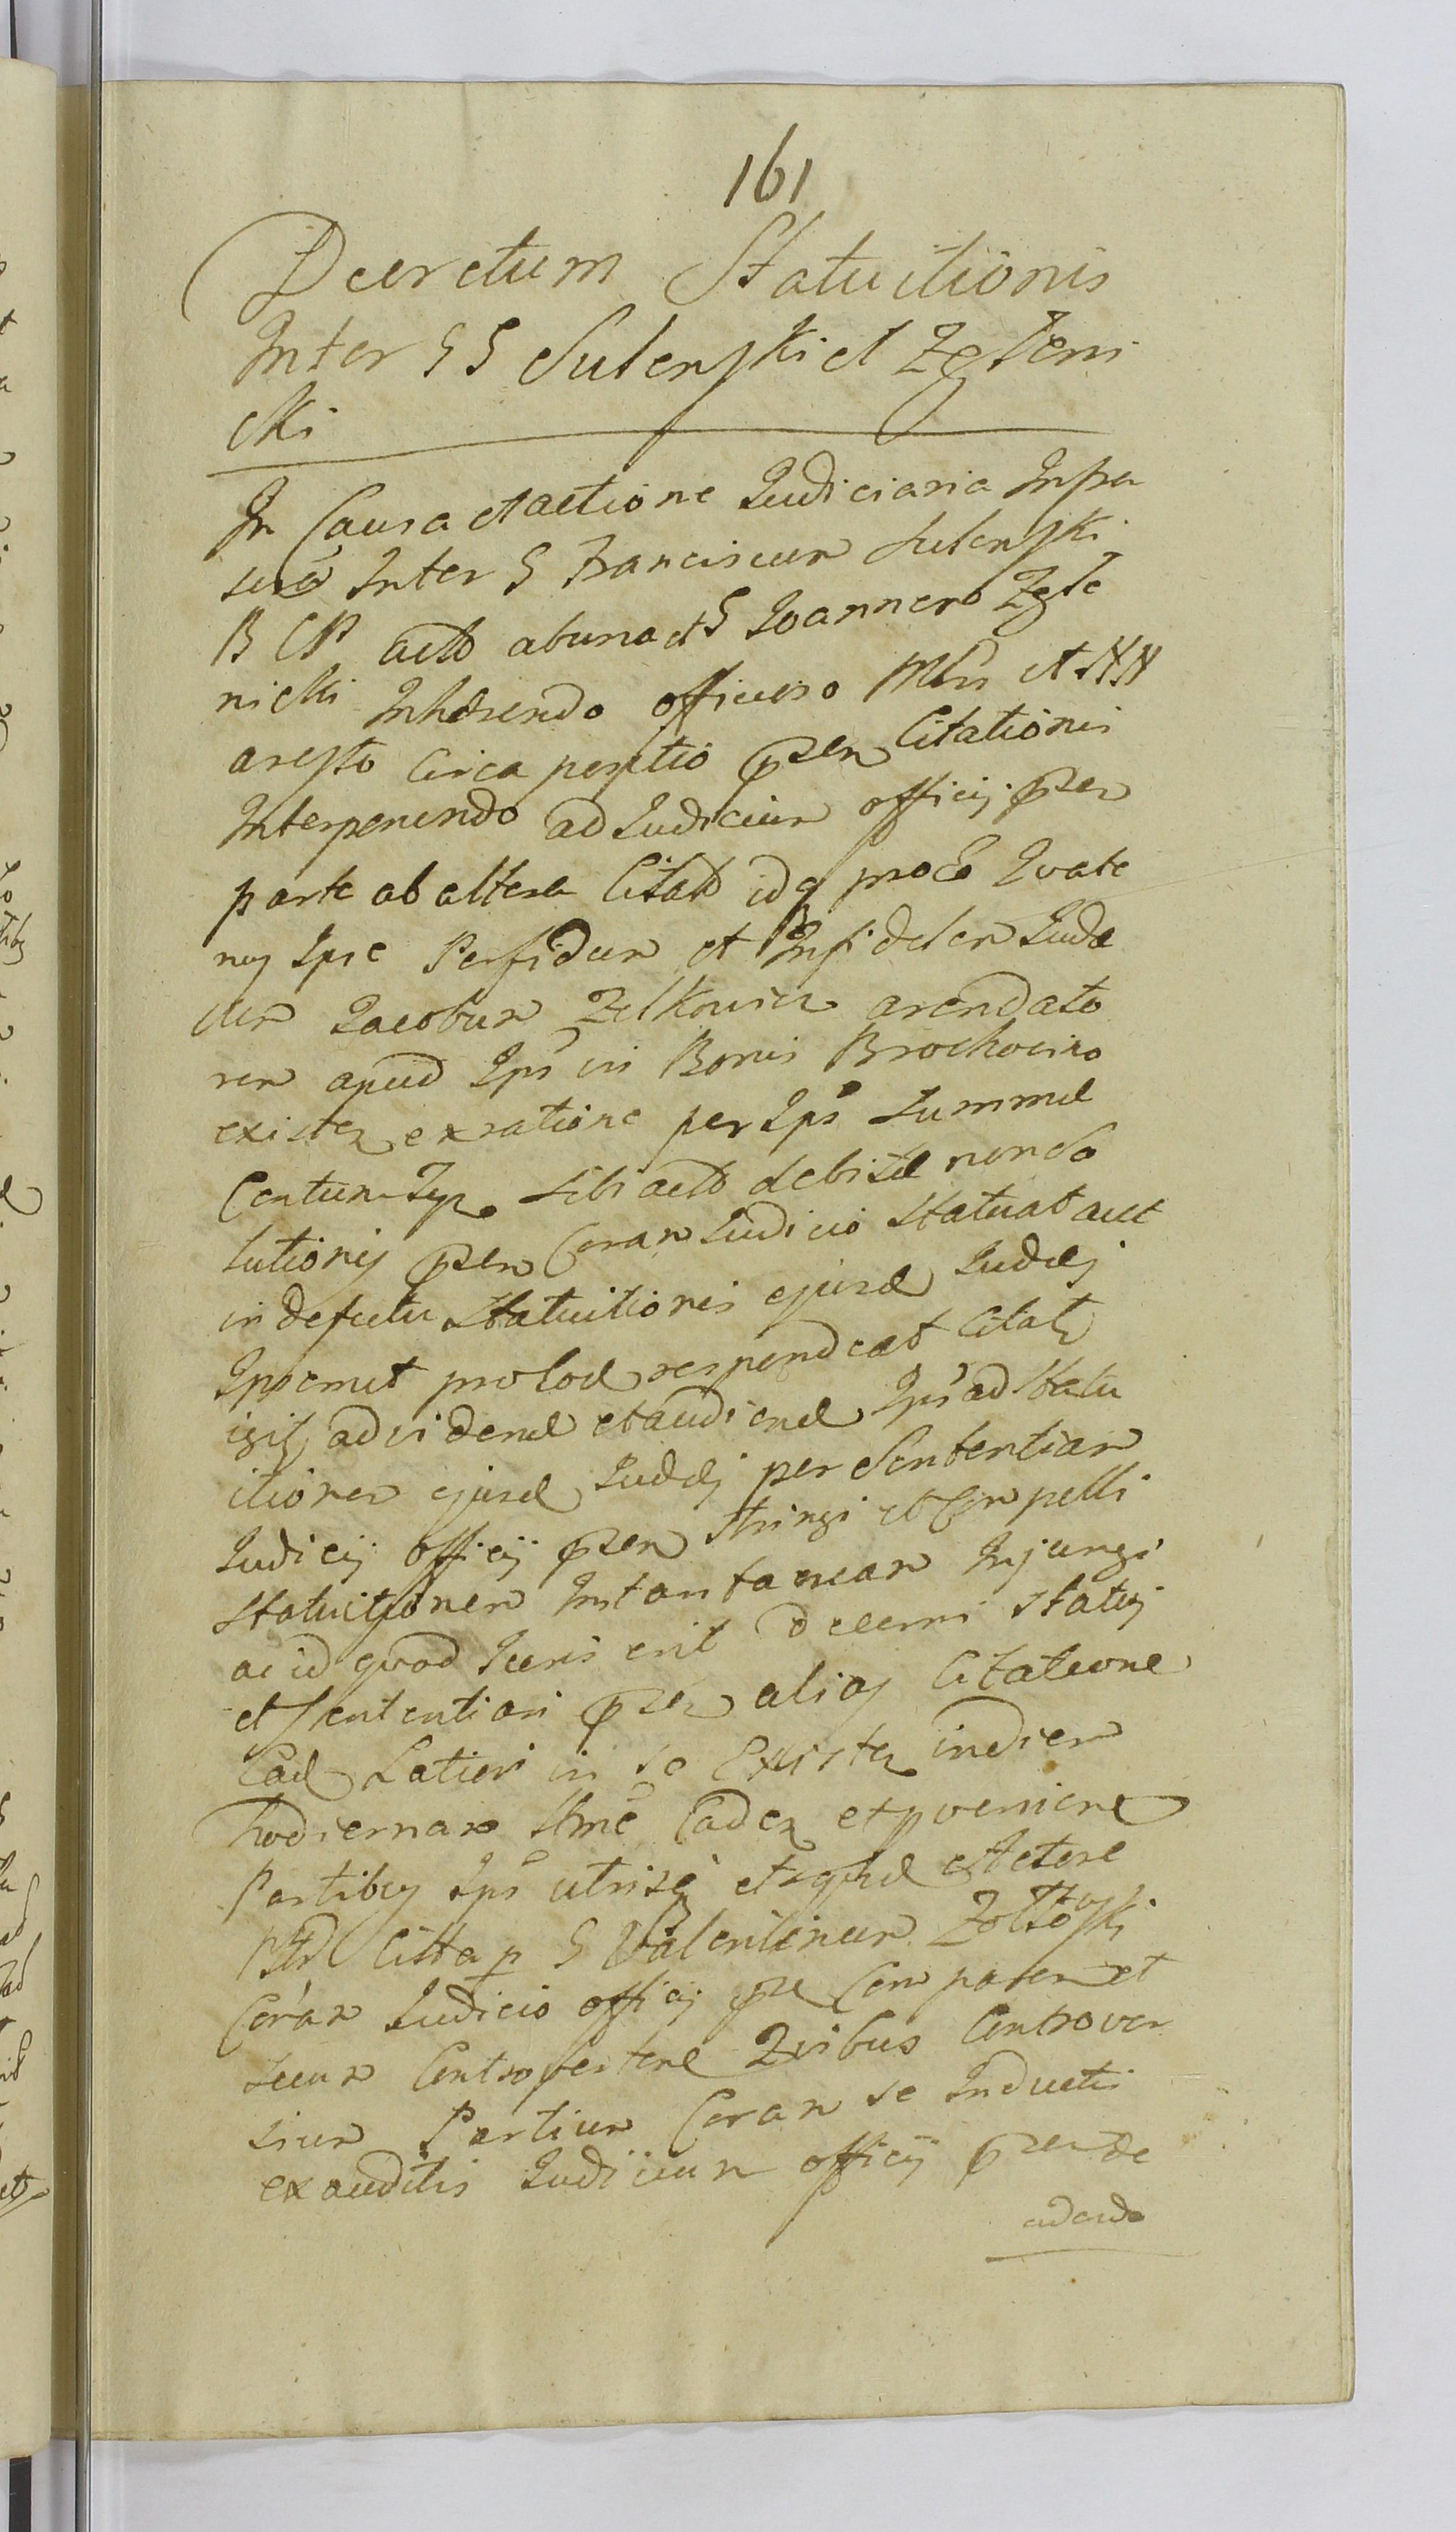 161
Decretum Statuitionis
Inter GG Sulerski et Zgleni
cki
In Causa et actione Judiciaria Infra
Inter G Franciscum Sulerski
B CP acto ab una et G Joannem Zgle
nicki Inhærendo officioso Mbri et NN
aresto Circa positio pñen Citationis
Interponendo ad Judicium officij pñen
parte ab altera Citato idq pro eo Quate
nus Ipse Perfidum et Infidelem Judæ
um Jacobum Zelkowicz arendato
rem apud Ips in Bonis Brochocino
existen ex ratione per Ips Summæ
Centum Sibi acto debitæ non so
lutionis pñen Coram Judicio Statuat aut
in defectu Statuitionis ejusd Judæi
Ipsemet pro eod respondeat Citat
igit ad vidend et audiend Ips ad Statu
itionem ejusd Judæi per Sententiam
Judicij officij pñen stringi et Compelli
Statuitionem Instantaneam Injungi
ac id quod Juris erit decerni statui
et sententiari pñen alias Citatione
Ead Latiori in se Existen in diem
hodiernam Caden et proveniend
Partibus Ips utrisq et
Citta p G Valentinum Zołtowski
Coram Judicio officij pñe Comparen et
secum Controverten Quibus Controver
sium Partium Coram se Inductis
exauditis Judicium officij pñen de